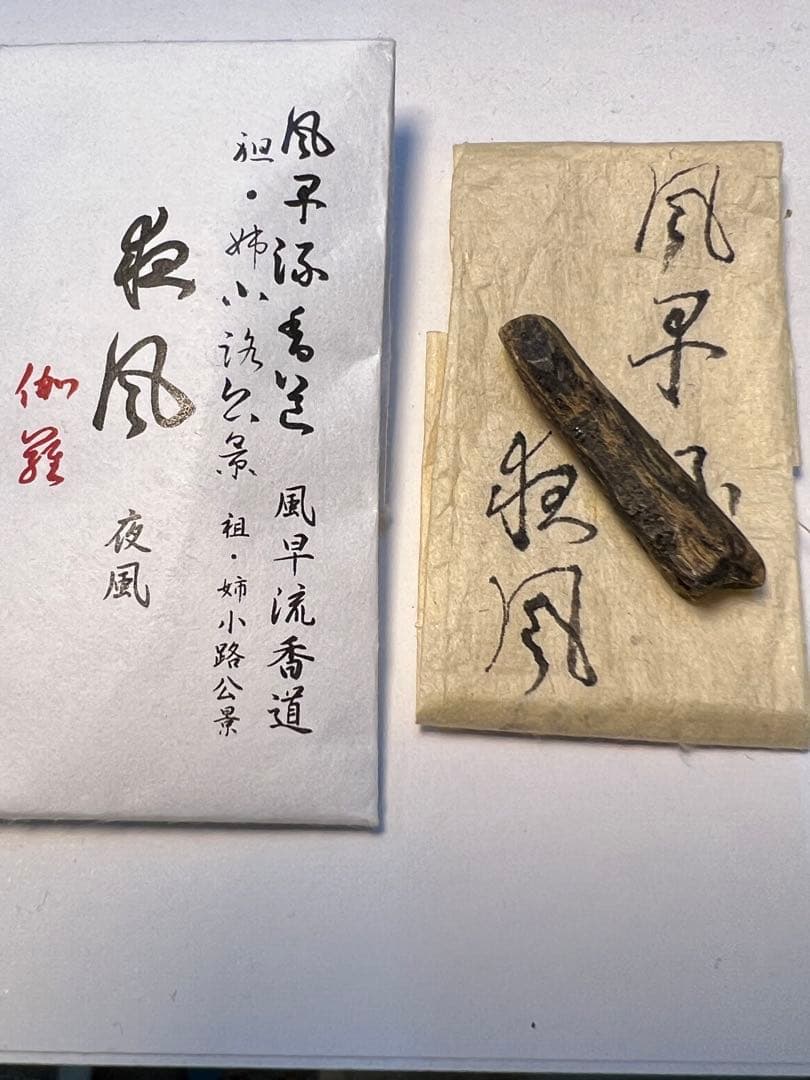 風早流香道 風早流香道
祖・姉小路公景 祖・姉小路公景
夜風 夜風
伽羅
風早
夜風